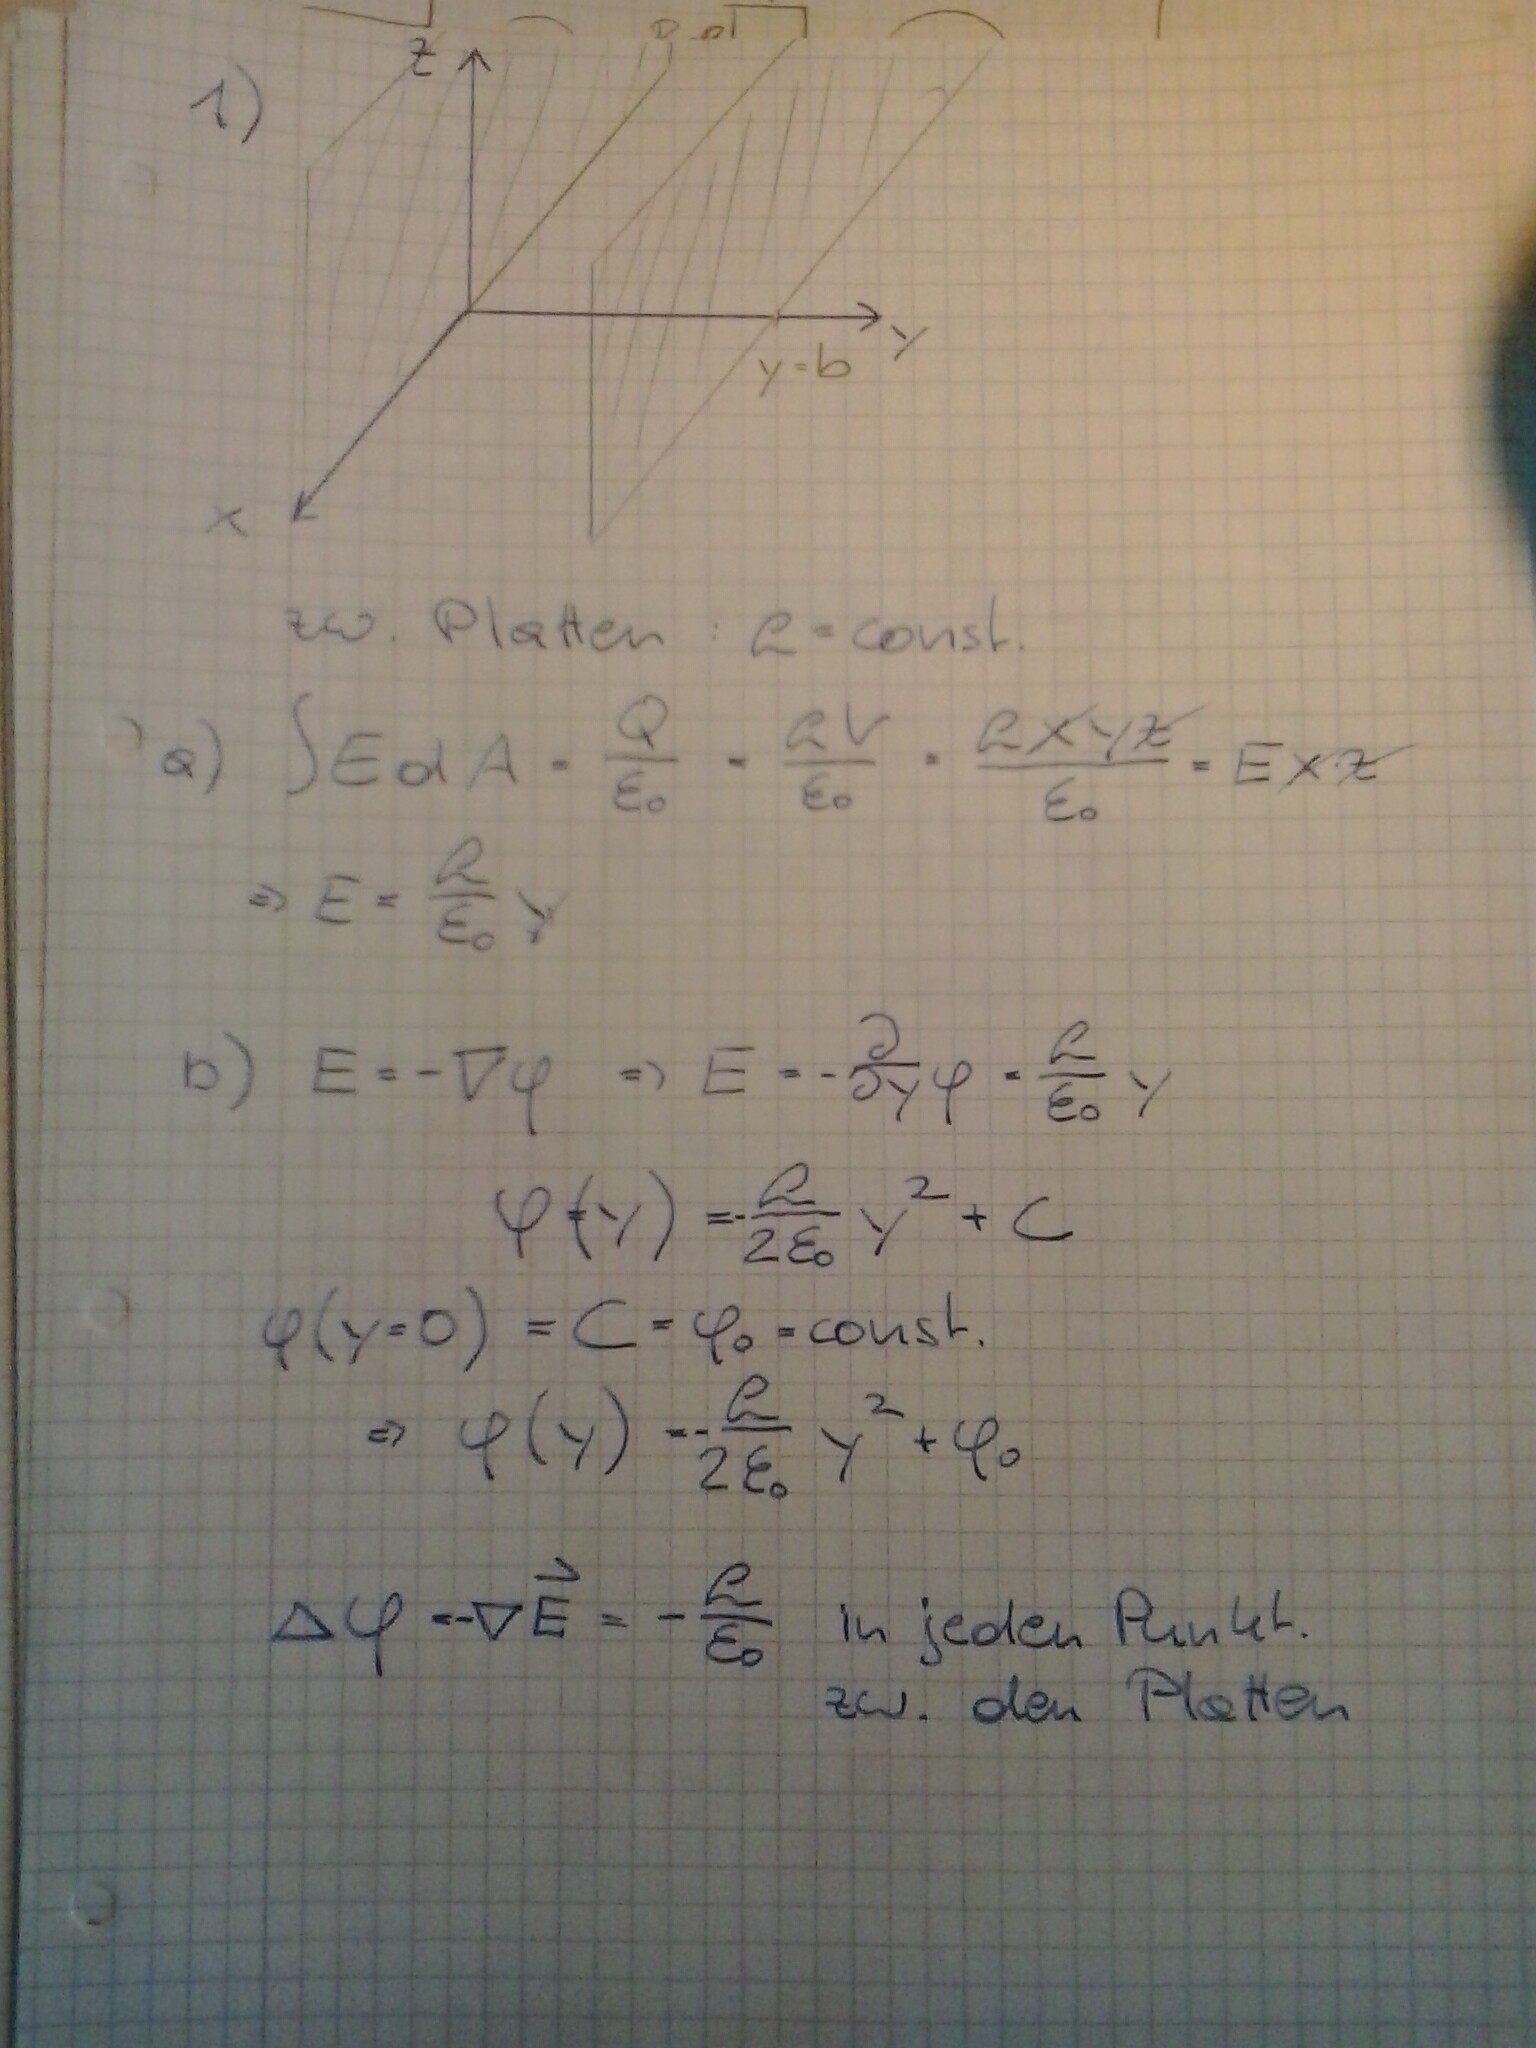 1)
z
y
y=b
x
zw. Platten : ρ = const.
a) ∫ E d A = Q/ε₀ = ρV/ε₀ = ρxyz/ε₀ = Exz
⇒ E = ρ/ε₀ y
b) E = -∇φ ⇒ E = -∂/∂y φ = ρ/ε₀ y
φ(y) = -ρ/2ε₀ y² + C
φ(y=0) = C = φ₀ = const.
⇒ φ(y) = -ρ/2ε₀ y² + φ₀
Δφ = -∇E⃗ = -ρ/ε₀ in jeden Punkt.
zw. den Platten